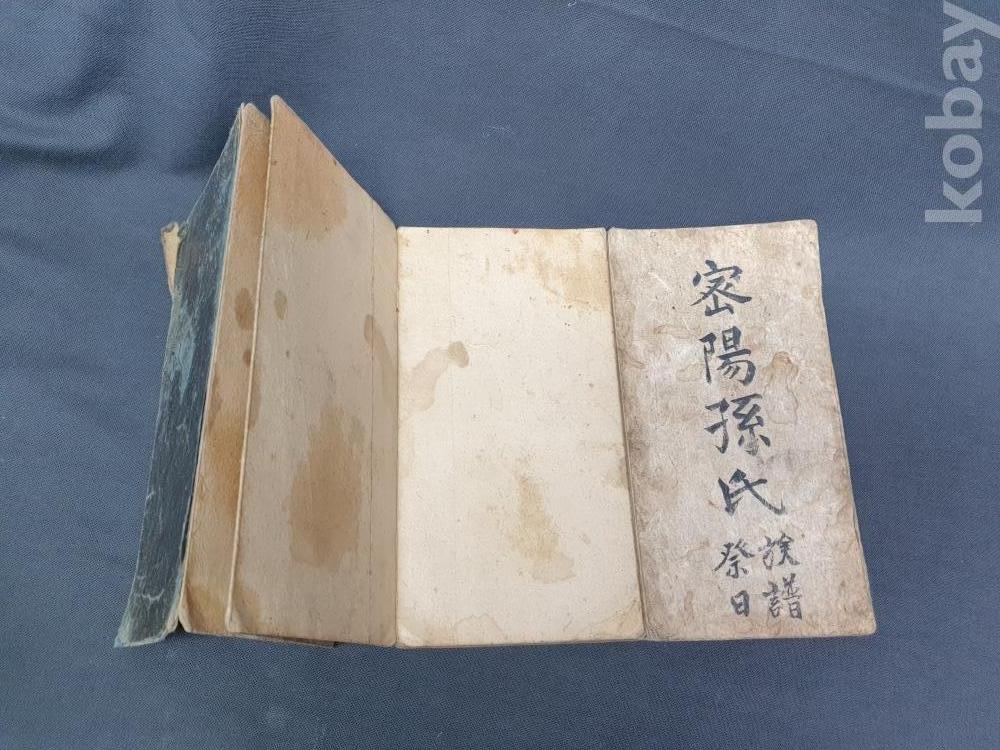 密陽孫氏
族譜
祭日
kobay